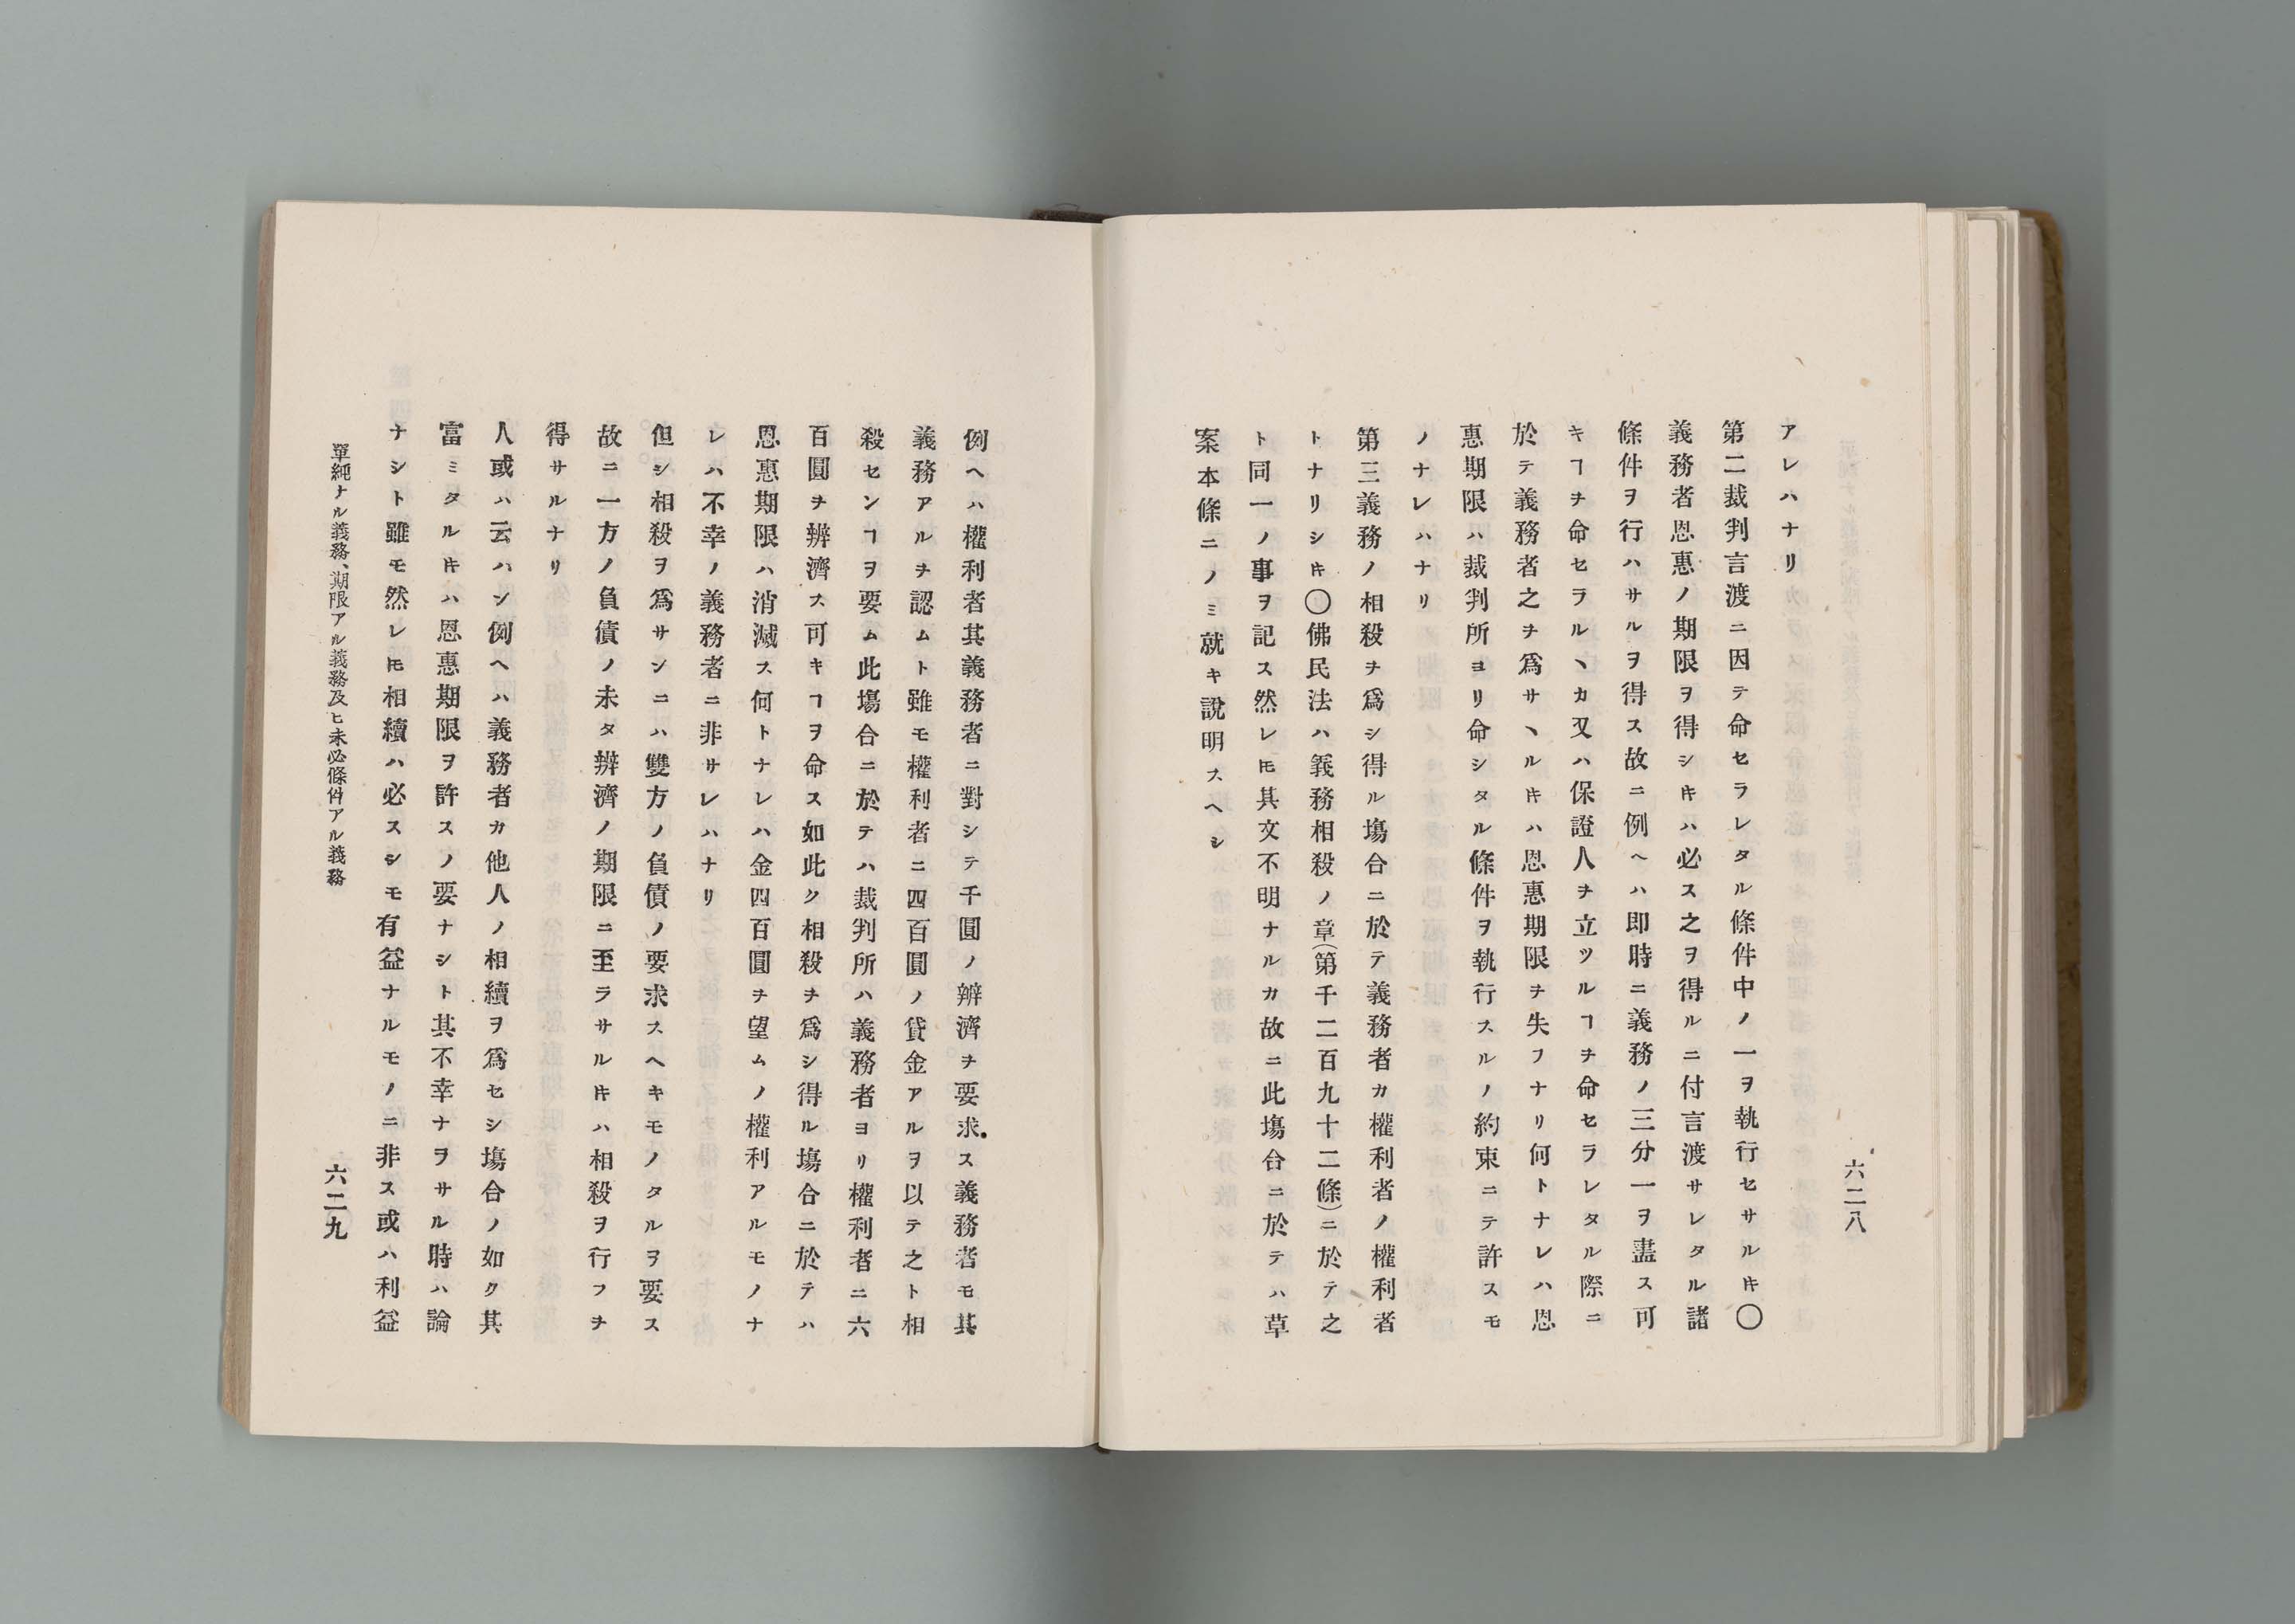 六二八
アレハナリ
第二裁判言渡ニ因テ命セラレタル條件中ノ一ヲ執行セサルキ〇
義務者恩惠ノ期限ヲ得シキハ必ス之ヲ得ルニ付言渡サレタル諸
條件ヲ行ハサルヲ得ス故ニ例ヘハ即時ニ義務ノ三分一ヲ盡ス可
キヿヲ命セラルヽカ又ハ保證人ヲ立ツルヿヲ命セラレタル際ニ
於テ義務者之ヲ爲サヽルキハ恩惠期限ヲ失フナリ何トナレハ恩
惠期限ハ裁判所ヨリ命シタル條件ヲ執行スルノ約束ニテ許スモ
ノナレハナリ
第三義務ノ相殺ヲ爲シ得ル塲合ニ於テ義務者カ權利者ノ權利者
トナリシキ〇佛民法ハ義務相殺ノ章(第千二百九十二條)ニ於テ之
ト同一ノ事ヲ記ス然レ𪜈其文不明ナルカ故ニ此塲合ニ於テハ草
案本條ニノミ就キ說明スヘシ
例ヘハ權利者其義務者ニ對シテ千圓ノ辨濟ヲ要求ス義務者モ其
義務アルヲ認ムト雖モ權利者ニ四百圓ノ貸金アルヲ以テ之ト相
殺センヿヲ要ム此塲合ニ於テハ裁判所ハ義務者ヨリ權利者ニ六
百圓ヲ辨濟ス可キヿヲ命ス如此ク相殺ヲ爲シ得ル塲合ニ於テハ
恩惠期限ハ消滅ス何トナレハ金四百圓ヲ望ムノ權利アルモノナ
レハ不幸ノ義務者ニ非サレハナリ
但シ相殺ヲ爲サンニハ雙方ノ負債ノ要求スヘキモノタルヲ要ス
故ニ一方ノ負債ノ未タ辨濟ノ期限ニ至ラサルキハ相殺ヲ行フヲ
得サルナリ
人或ハ云ハン例ヘハ義務者カ他人ノ相續ヲ爲セシ塲合ノ如ク其
富ミタルキハ恩惠期限ヲ許スノ要ナシト其不幸ナヲサル時ハ論
ナシト雖モ然レ𪜈相續ハ必スシモ有益ナルモノニ非ス或ハ利益
單純ナル義務、期限アル義務及ヒ未必條件アル義務
六二九